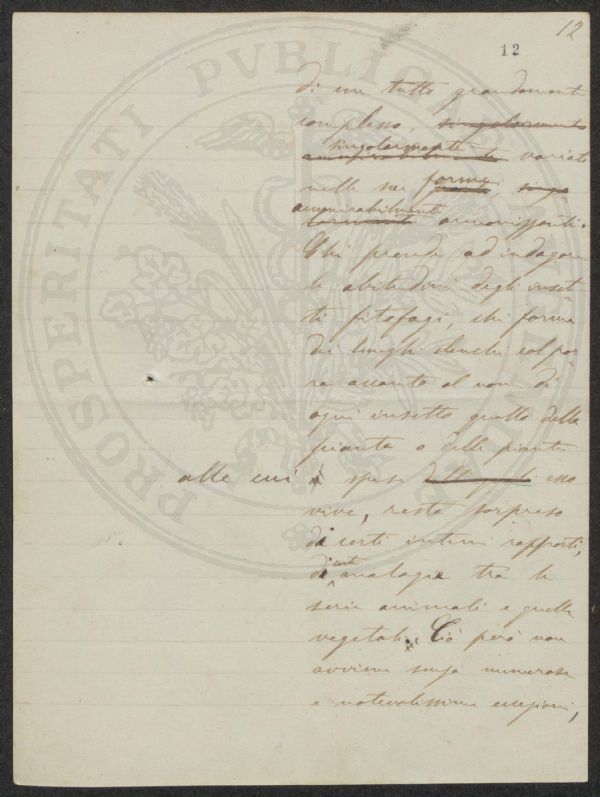 12
12
di un tutto grandemente
complesso, singolarmente
singolarmente
ammirabilmente variato
nelle sue forme
ammirabilmente armonizzanti.
Chi prende ad indagare
le abitudini degli inset
ti fitofagi, chi forma
dei lunghi elenchi col por
re accanto al nome di
ogni insetto quello della
pianta o delle piante
alle cui spese delle quali esso
vive, resta sorpreso
di certi intimi rapporti,
di certe analogie tra le
serie animali e quelle
vegetali. Ciò però non
avviene senza numerose
e notevolissime eccezioni,
PROSPERITATI PVBLICAE